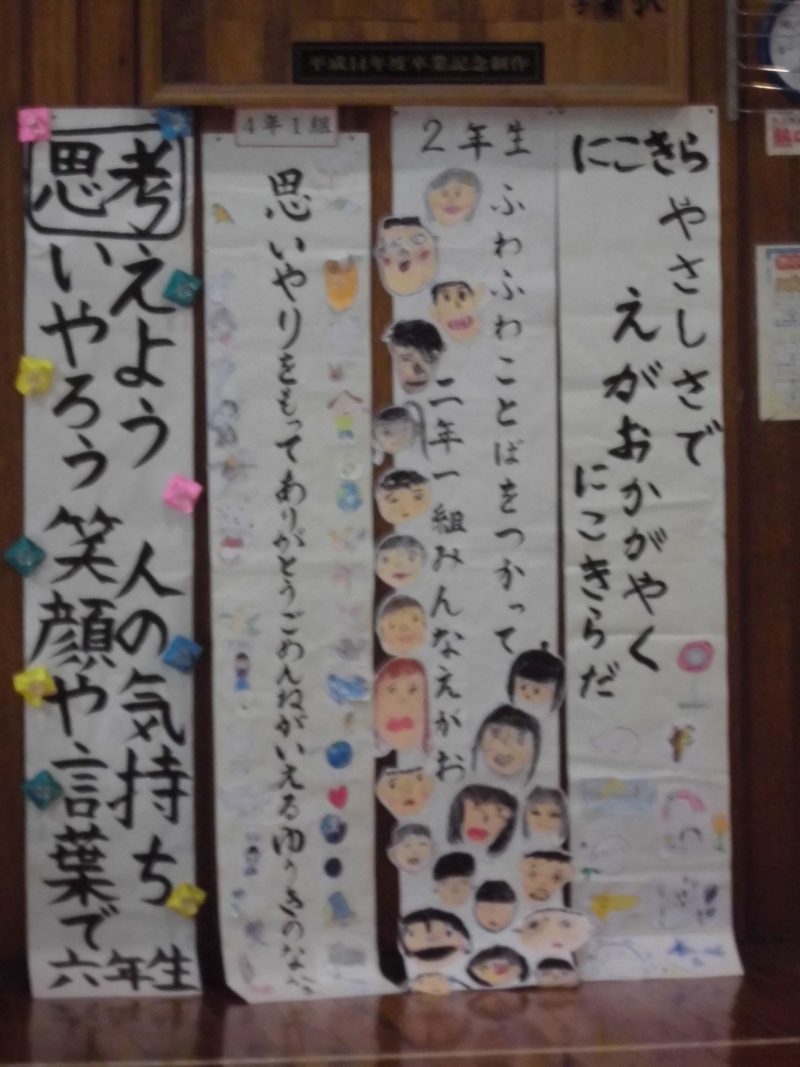 平成14年度卒業記念制作
にこきら
やさしさで
えがおかがやく
にこきらだ
2年生
ふわふわことばをつかって
二年一組みんなえがお
4年1組
思いやりをもってありがとうごめんねがいえるゆうきのなへ
考えよう 人の気持ち
思いやろう 笑顔や言葉で
六年生